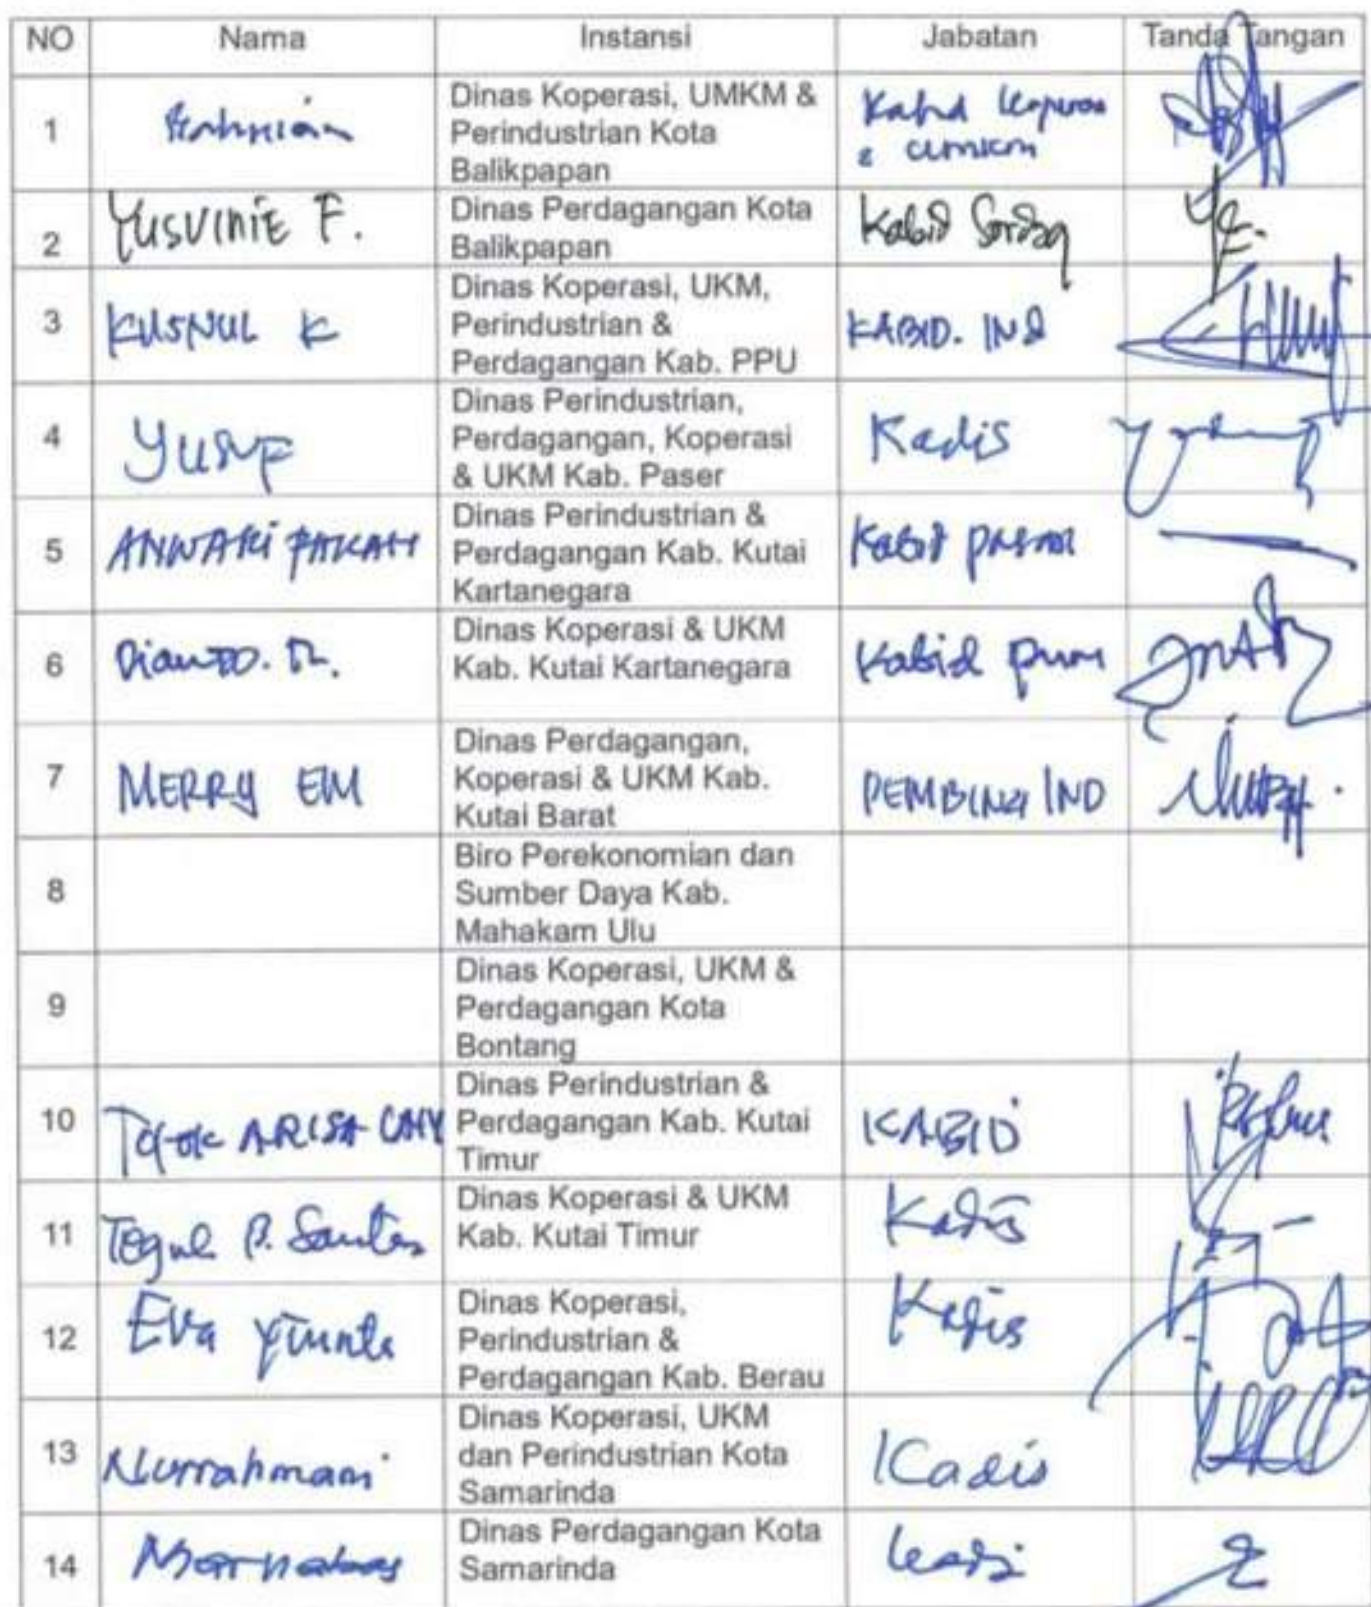 NO Nama Instansi Jabatan Tanda Tangan
1 Dinas Koperasi, UMKM &
Perindustrian Kota
Balikpapan
Kabid Koperasi
& UMKM
2 YUSVINIE F. Dinas Perdagangan Kota
Balikpapan
Kabid
3 KUSNUL K Dinas Koperasi, UKM,
Perindustrian &
Perdagangan Kab. PPU
KABID. IND
4 YUSUF Dinas Perindustrian,
Perdagangan, Koperasi
& UKM Kab. Paser
Kadis
5 Dinas Perindustrian &
Perdagangan Kab. Kutai
Kartanegara
Kabid PASAR
6 Dinas Koperasi & UKM
Kab. Kutai Kartanegara
Kabid
7 MERRY EM Dinas Perdagangan,
Koperasi & UKM Kab.
Kutai Barat
PEMBINA IND
8 Biro Perekonomian dan
Sumber Daya Kab.
Mahakam Ulu
9 Dinas Koperasi, UKM &
Perdagangan Kota
Bontang
10 ARISA Dinas Perindustrian &
Perdagangan Kab. Kutai
Timur
KABID
11 Teguh B. Santos Dinas Koperasi & UKM
Kab. Kutai Timur
Kadis
12 Eva Yunita Dinas Koperasi,
Perindustrian &
Perdagangan Kab. Berau
Kadis
13 Nurrahmani Dinas Koperasi, UKM
dan Perindustrian Kota
Samarinda
Kadis
14 Marnabas Dinas Perdagangan Kota
Samarinda